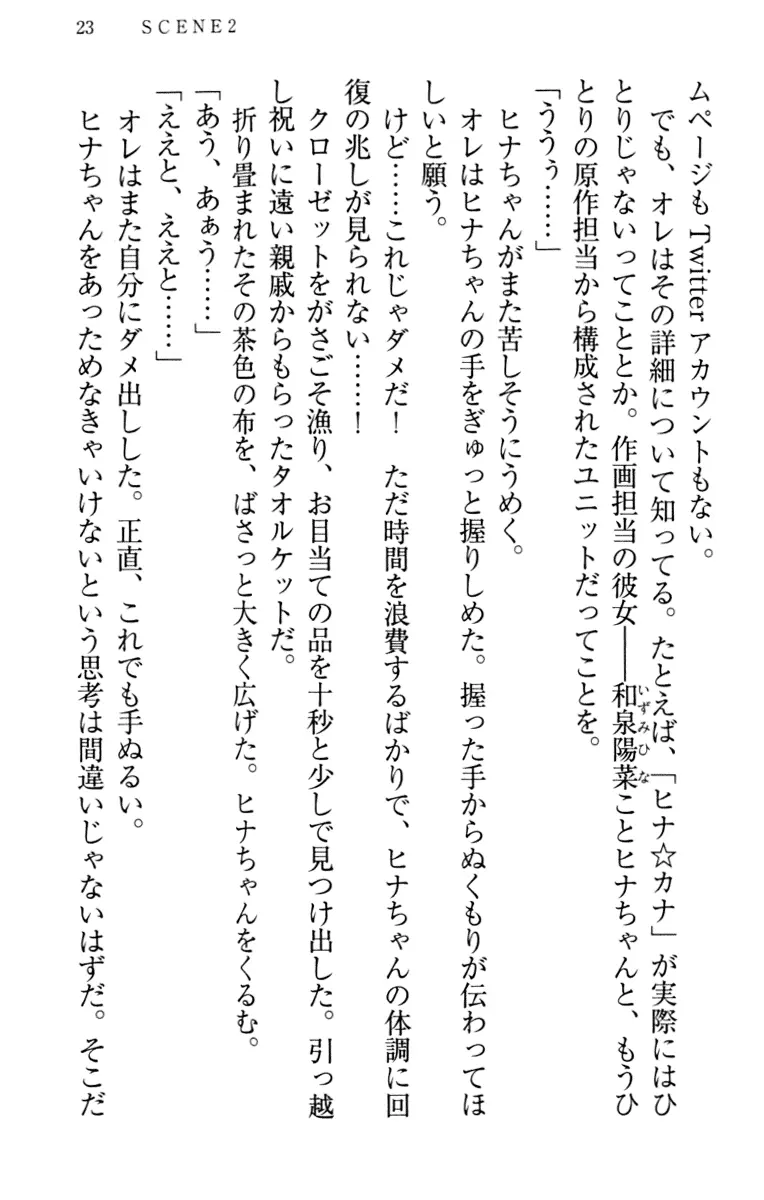 23　SCENE2
ムページもTwitterアカウントもない。
　でも、オレはその詳細について知ってる。たとえば、「ヒナ☆カナ」が実際にはひ
とりじゃないってこととか。作画担当の彼女――和泉陽菜ことヒナちゃんと、もうひ
いずみひな
とりの原作担当から構成されたユニットだってことを。
「ううぅ……」
　ヒナちゃんがまた苦しそうにうめく。
　オレはヒナちゃんの手をぎゅっと握りしめた。握った手からぬくもりが伝わってほ
しいと願う。
　けど……これじゃダメだ！　ただ時間を浪費するばかりで、ヒナちゃんの体調に回
復の兆しが見られない……！
　クローゼットをがさごそ漁り、お目当ての品を十秒と少しで見つけ出した。引っ越
し祝いに遠い親戚からもらったタオルケットだ。
　折り畳まれたその茶色の布を、ばさっと大きく広げた。ヒナちゃんをくるむ。
「あう、あぁう……」
「ええと、ええと……」
　オレはまた自分にダメ出しした。正直、これでも手ぬるい。
　ヒナちゃんをあっためなきゃいけないという思考は間違いじゃないはずだ。そこだ